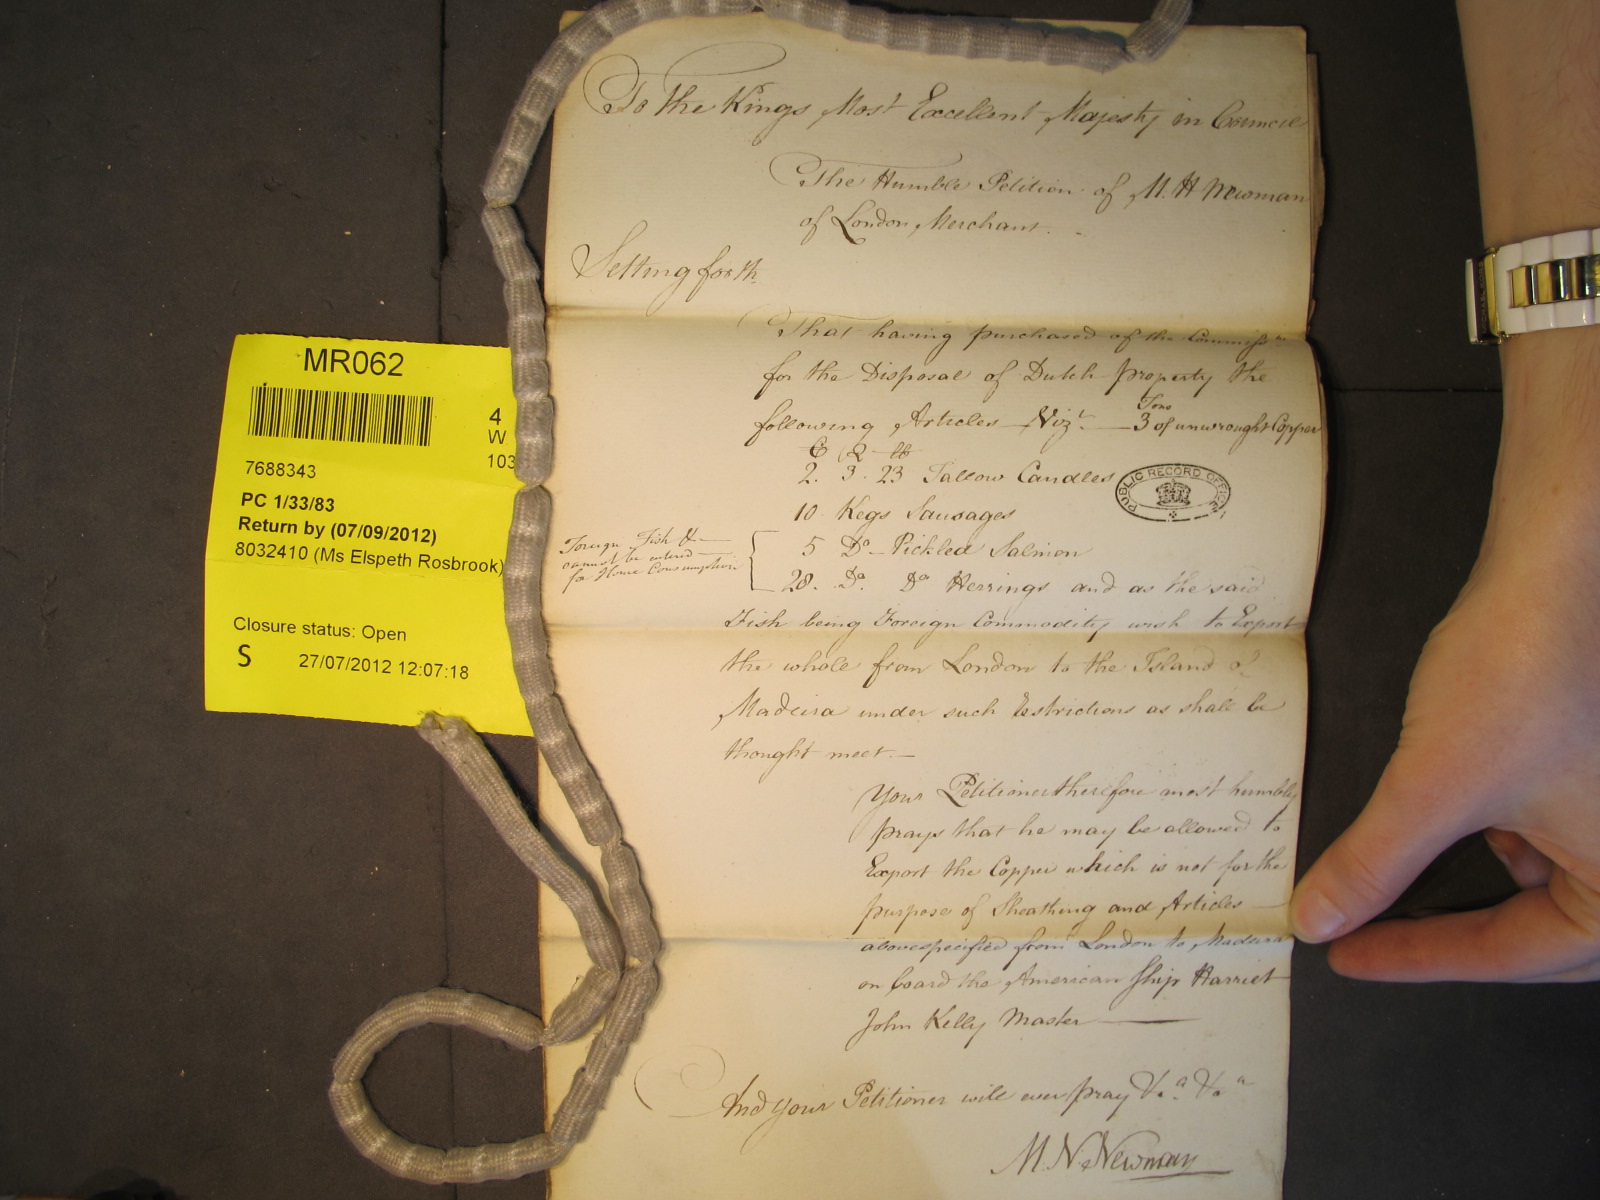 To the Kings Most Excellent Majesty in Council
The Humble Petition of M. H Newman
of London, Merchant.
Setting forth
That having purchased of the Commissrs
for the Disposal of Dutch Property the
following Articles Vizt. — 3 Tons of unwrought Copper
C Q lb
2. 3. 23 Tallow Candles
10 Kegs Sausages
5 Do Pickled Salmon
28. Do. Do Herrings and as the said
Foreign Fish &c
cannot be entered
for Home Consumption
Fish being Foreign Commodity wish to Export
the whole from London to the Island of
Madeira under such Restrictions as shall be
thought meet.—
Your Petitioner therefore most humbly
prays that he may be allowed to
Export the Copper which is not for the
purpose of Sheathing and Articles —
abovespecified from London to Madeira
on board the American Ship Harriet
John Kelly Master —
And your Petitioner will ever pray &ca. &ca
M. N. Newman
PUBLIC RECORD OFFICE
MR062
4
W
103
7688343
PC 1/33/83
Return by (07/09/2012)
8032410 (Ms Elspeth Rosbrook)
Closure status: Open
S 27/07/2012 12:07:18